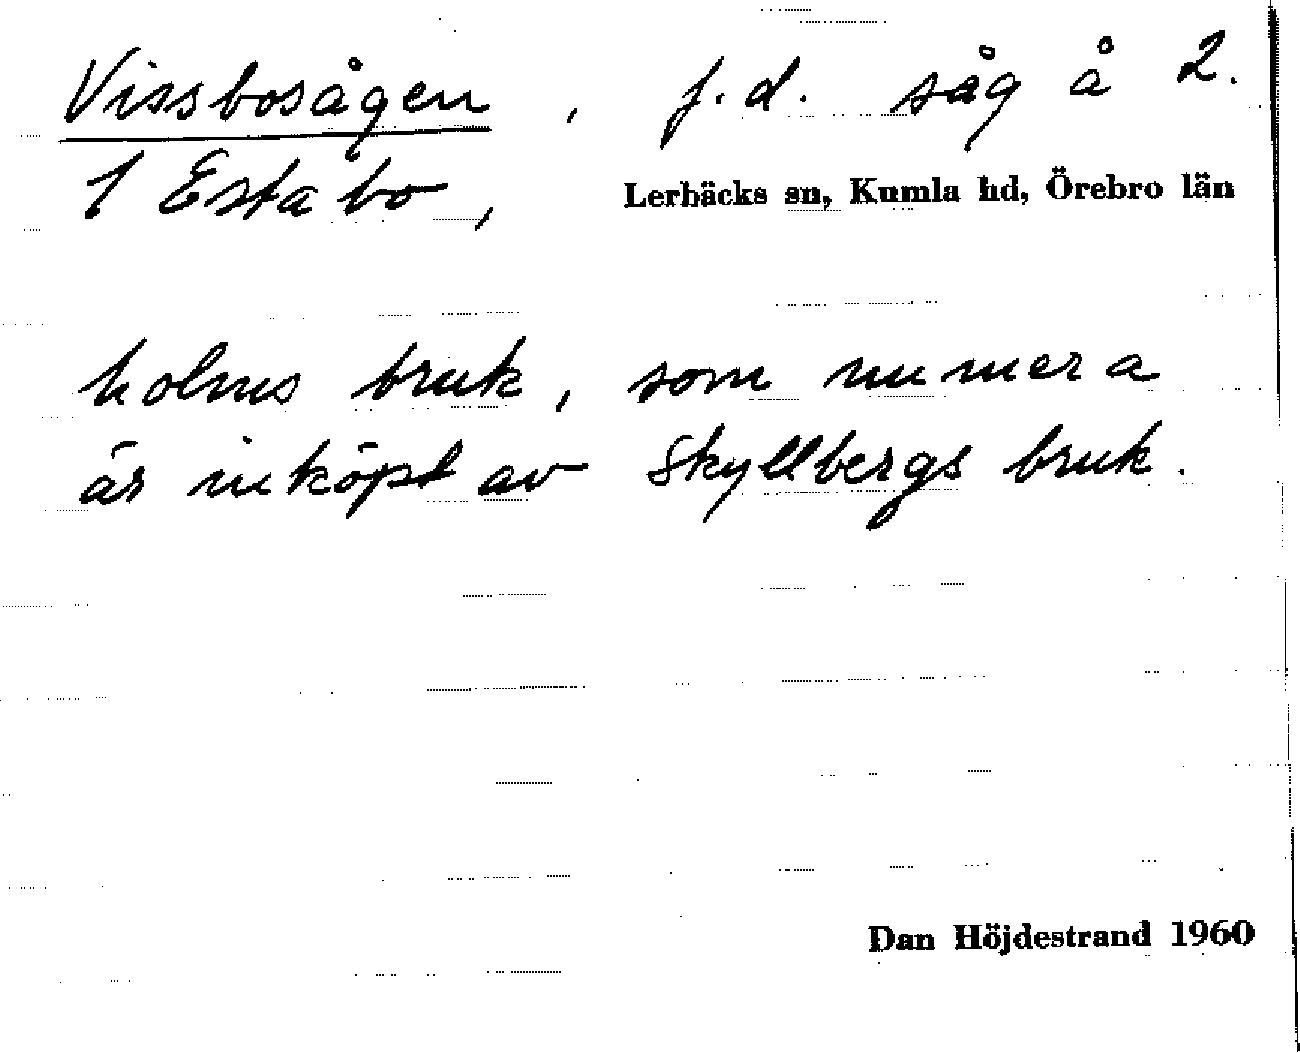 Vissbosågen, f.d. såg å 2.
1 Estabo, Lerbäcks sn, Kumla hd, Örebro län
holms bruk, som numera
är inköpt av Skyllbergs bruk.
Dan Höjdestrand 1960